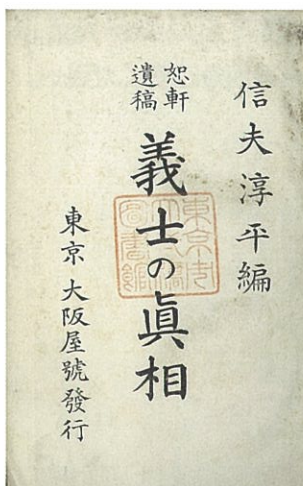 信夫淳平編
恕軒
遺稿
義士の眞相
東京 大阪屋號發行